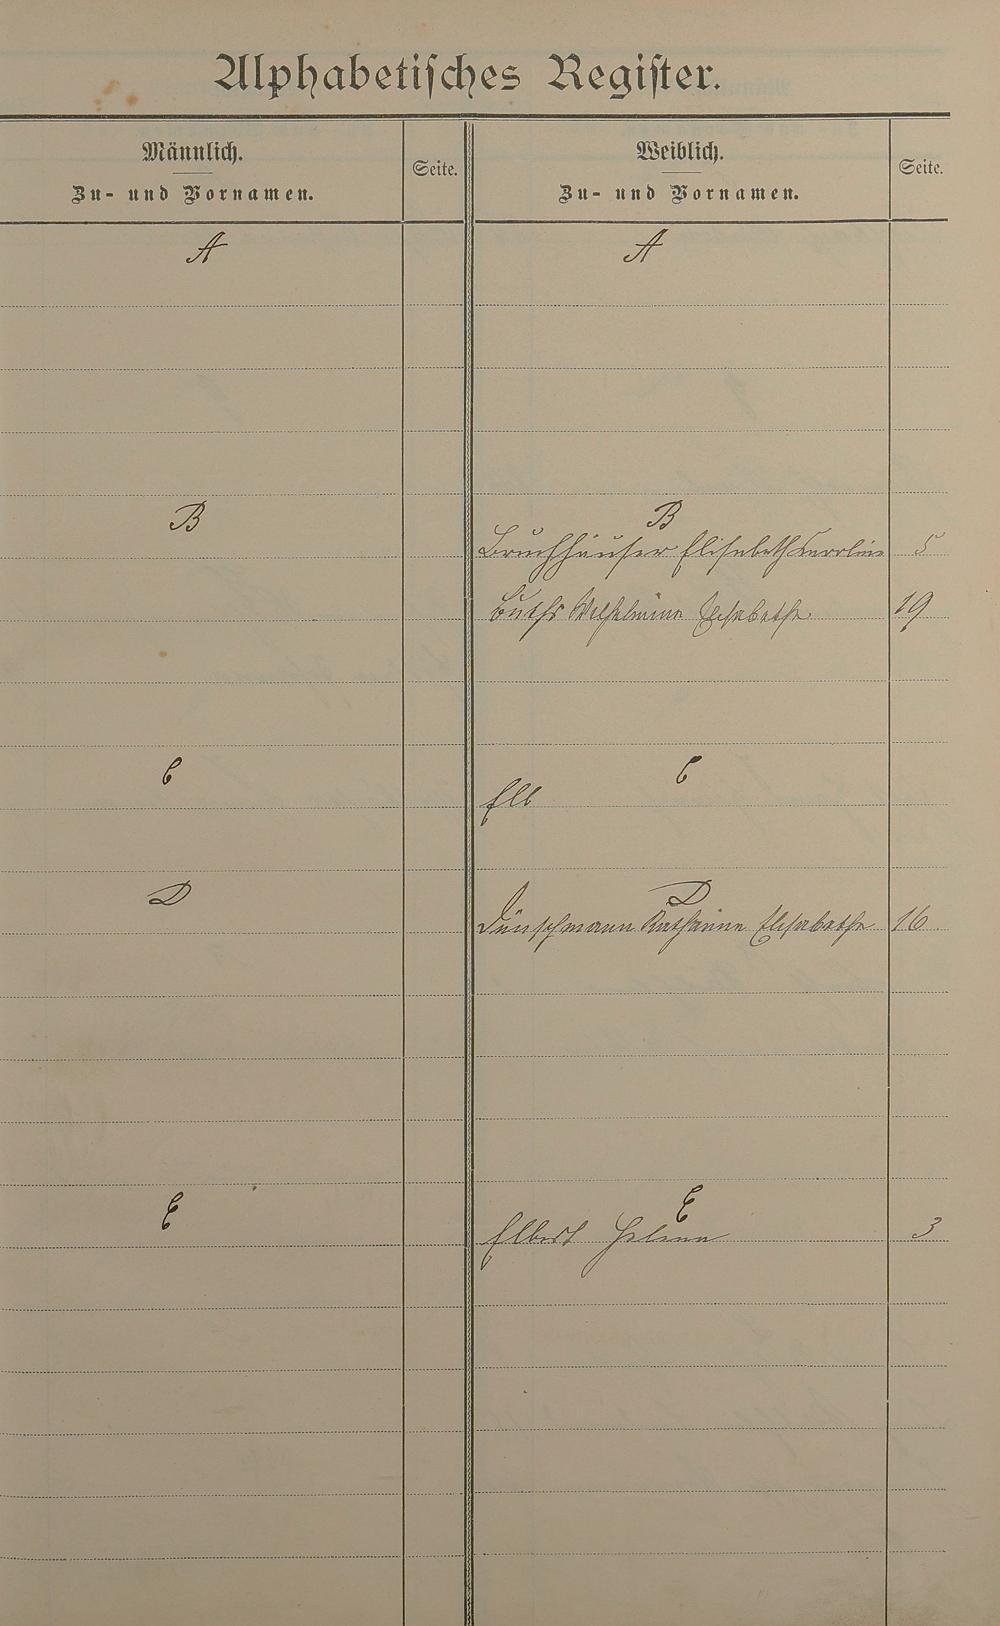 Alphabetisches Register.
Männlich.
Zu- und Vornamen.
Seite.
Weiblich.
Zu- und Vornamen.
Seite.
A A
B B
Bruchhäuser Elisabeth Karoline 5
Buths Wilhelmine Elisabethe 19
C C
Elb
D D
Dünschmann Katharine Elisabethe 16
E E
Elbert Helena 3